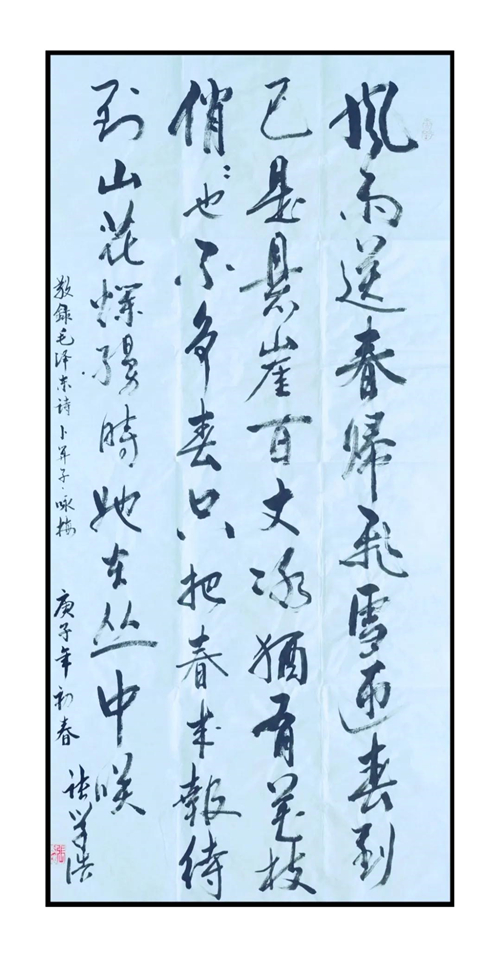 風雨送春歸飛雪迎春到
已是悬崖百丈冰猶有花枝
俏:也不争春只把春来報待
到山花爛漫時她在丛中咲
敬錄毛泽东诗卜算子·咏梅 庚子年初春